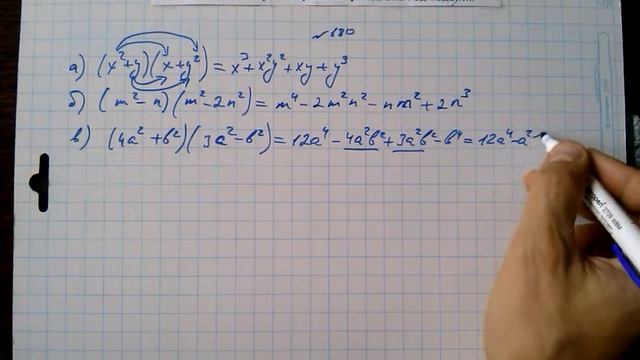 № 680
а) (x²+y)(x+y²) = x³+x²y²+xy+y³
б) (m²-n)(m²-2n²) = m⁴-2m²n²-nm²+2n³
в) (4a²+b²)(3a²-b²) = 12a⁴-4a²b²+3a²b²-b⁴ = 12a⁴-a²